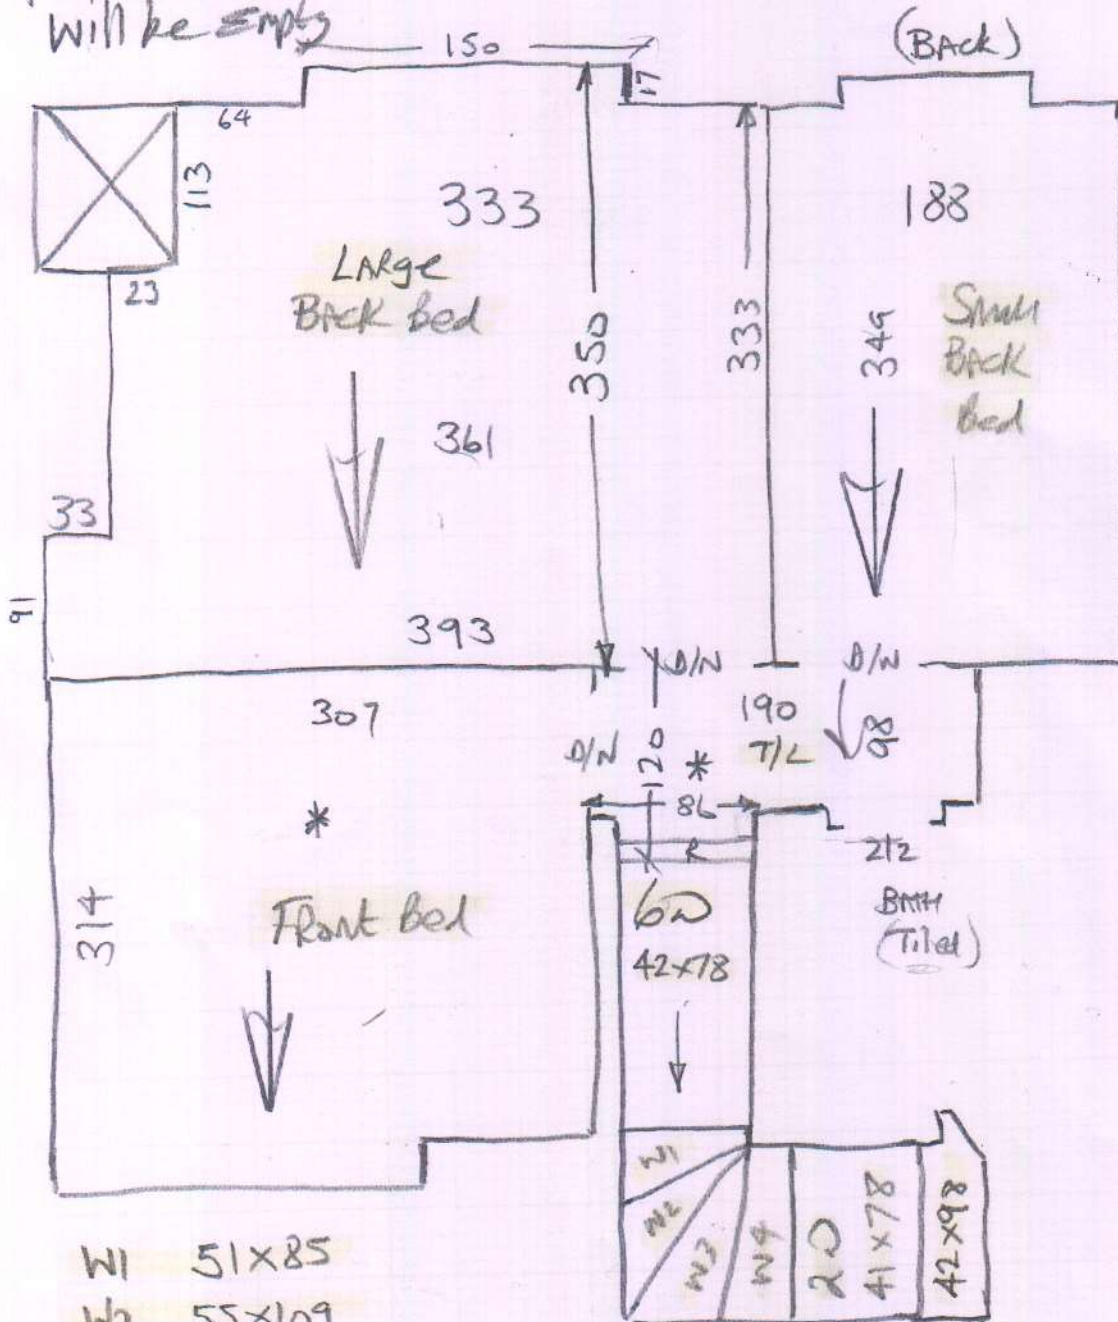 will be Empty
150
(BACK)
17
64
113
333
188
LARge
BACK Bed
23
350
333
349
Small
BACK
Bed
361
33
91
393
D/N
D/W
307
190
D/N
120
*
T/L
98
*
86
R
212
314
Front Bed
6D
42x78
BATH
(Tiled)
W1
W2
W3
W4
2D
41x78
42x98
W1 51x85
W2 55x109